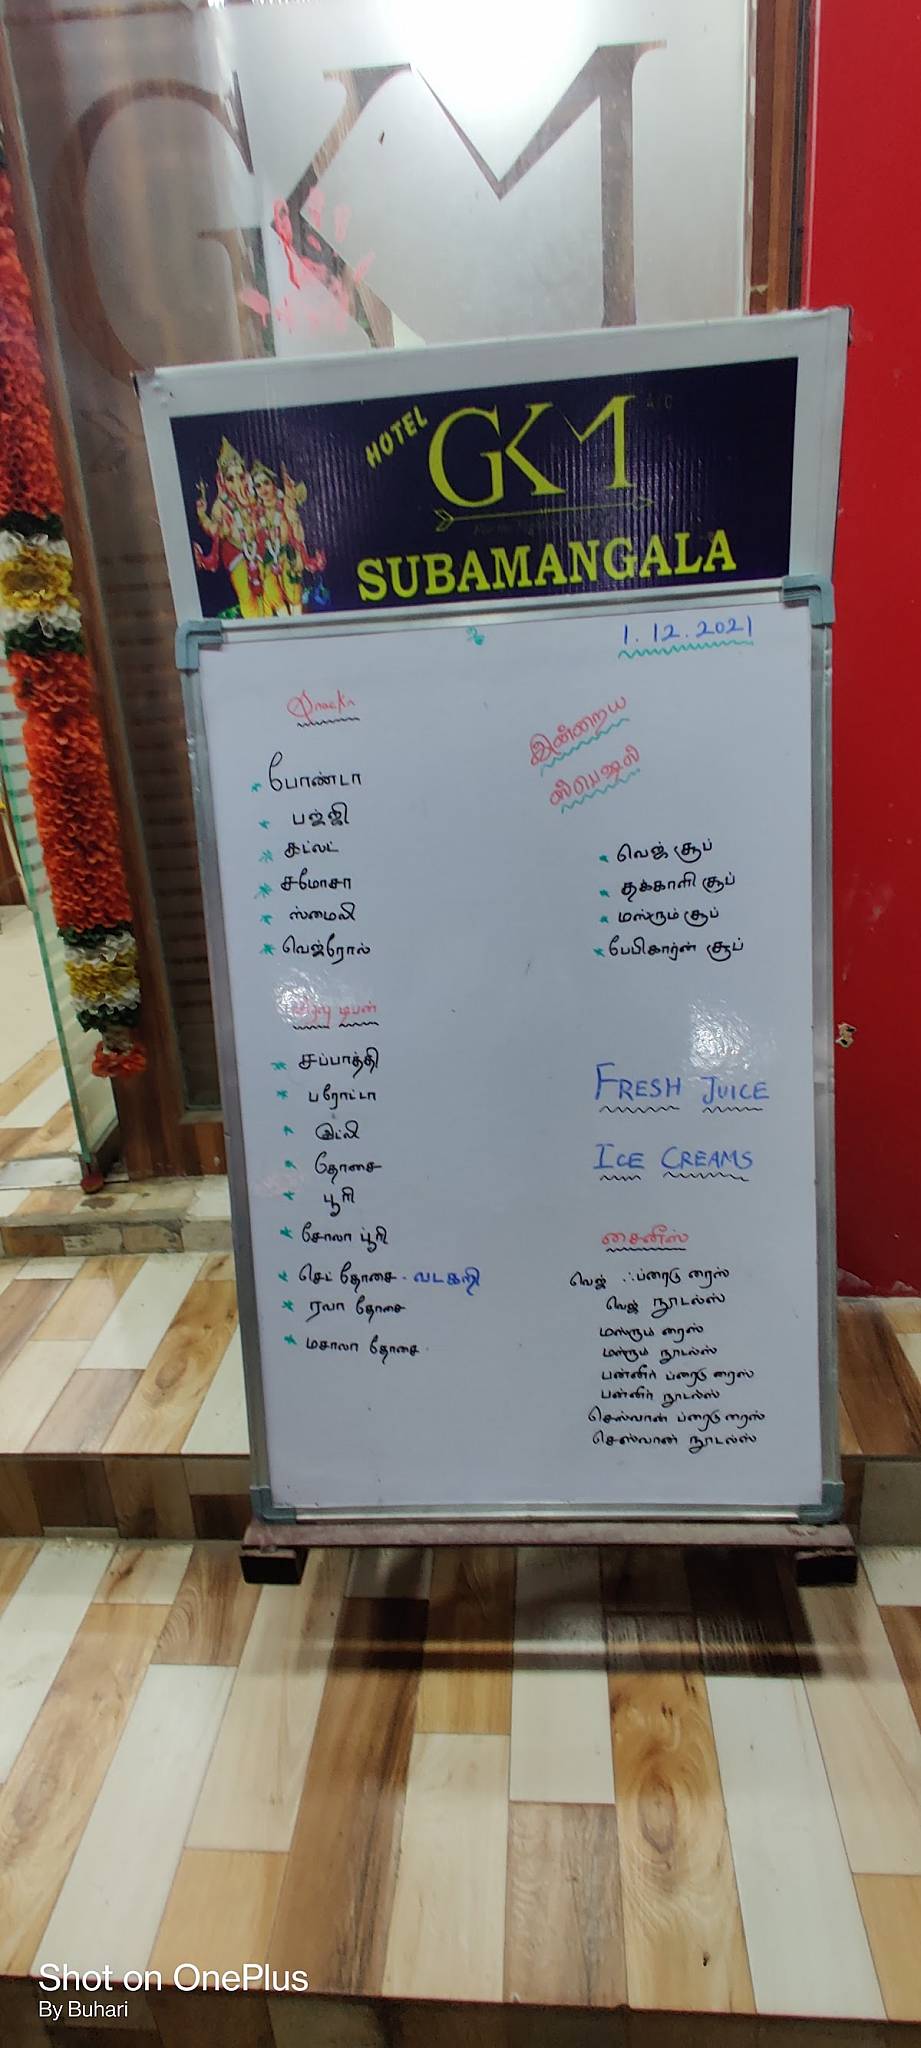 GKM
HOTEL
GKM A/C
SUBAMANGALA
1.12.2021
Snacks
போண்டா
பஜ்ஜி
கட்லட்
சமோசா
ஸ்மைலி
வெஜ்ரோல்
இரவு டிபன்
சப்பாத்தி
பரோட்டா
இட்லி
தோசை
பூரி
சோலா பூரி
செட் தோசை - வடகறி
ரவா தோசை
மசாலா தோசை
இன்றைய
ஸ்பெஷல்
வெஜ் சூப்
தக்காளி சூப்
மஸ்ரூம் சூப்
பேபிகார்ன் சூப்
FRESH JUICE
ICE CREAMS
சைனீஸ்
வெஜ் ஃப்ரைடு ரைஸ்
வெஜ் நூடல்ஸ்
மஸ்ரூம் ரைஸ்
மஸ்ரூம் நூடல்ஸ்
பன்னீர் ப்ரைடு ரைஸ்
பன்னீர் நூடல்ஸ்
செஸ்வான் ப்ரைடு ரைஸ்
செஸ்வான் நூடல்ஸ்
Shot on OnePlus
By Buhari